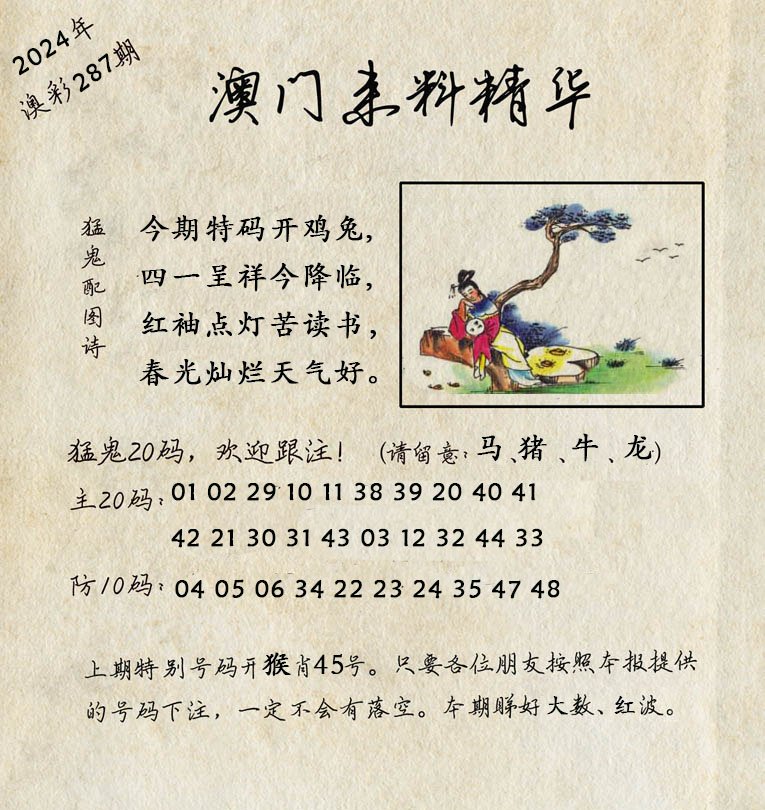 2024年
澳彩287期
澳门来料精华
猛鬼配图诗
今期特码开鸡兔,
四一呈祥今降临,
红袖点灯苦读书,
春光灿烂天气好。
猛鬼20码，欢迎跟注！（请留意：马、猪、牛、龙）
主20码：01 02 29 10 11 38 39 20 40 41
42 21 30 31 43 03 12 32 44 33
防10码：04 05 06 34 22 23 24 35 47 48
上期特别号码开猴肖45号。只要各位朋友按照本报提供
的号码下注，一定不会有落空。本期睇好大数、红波。